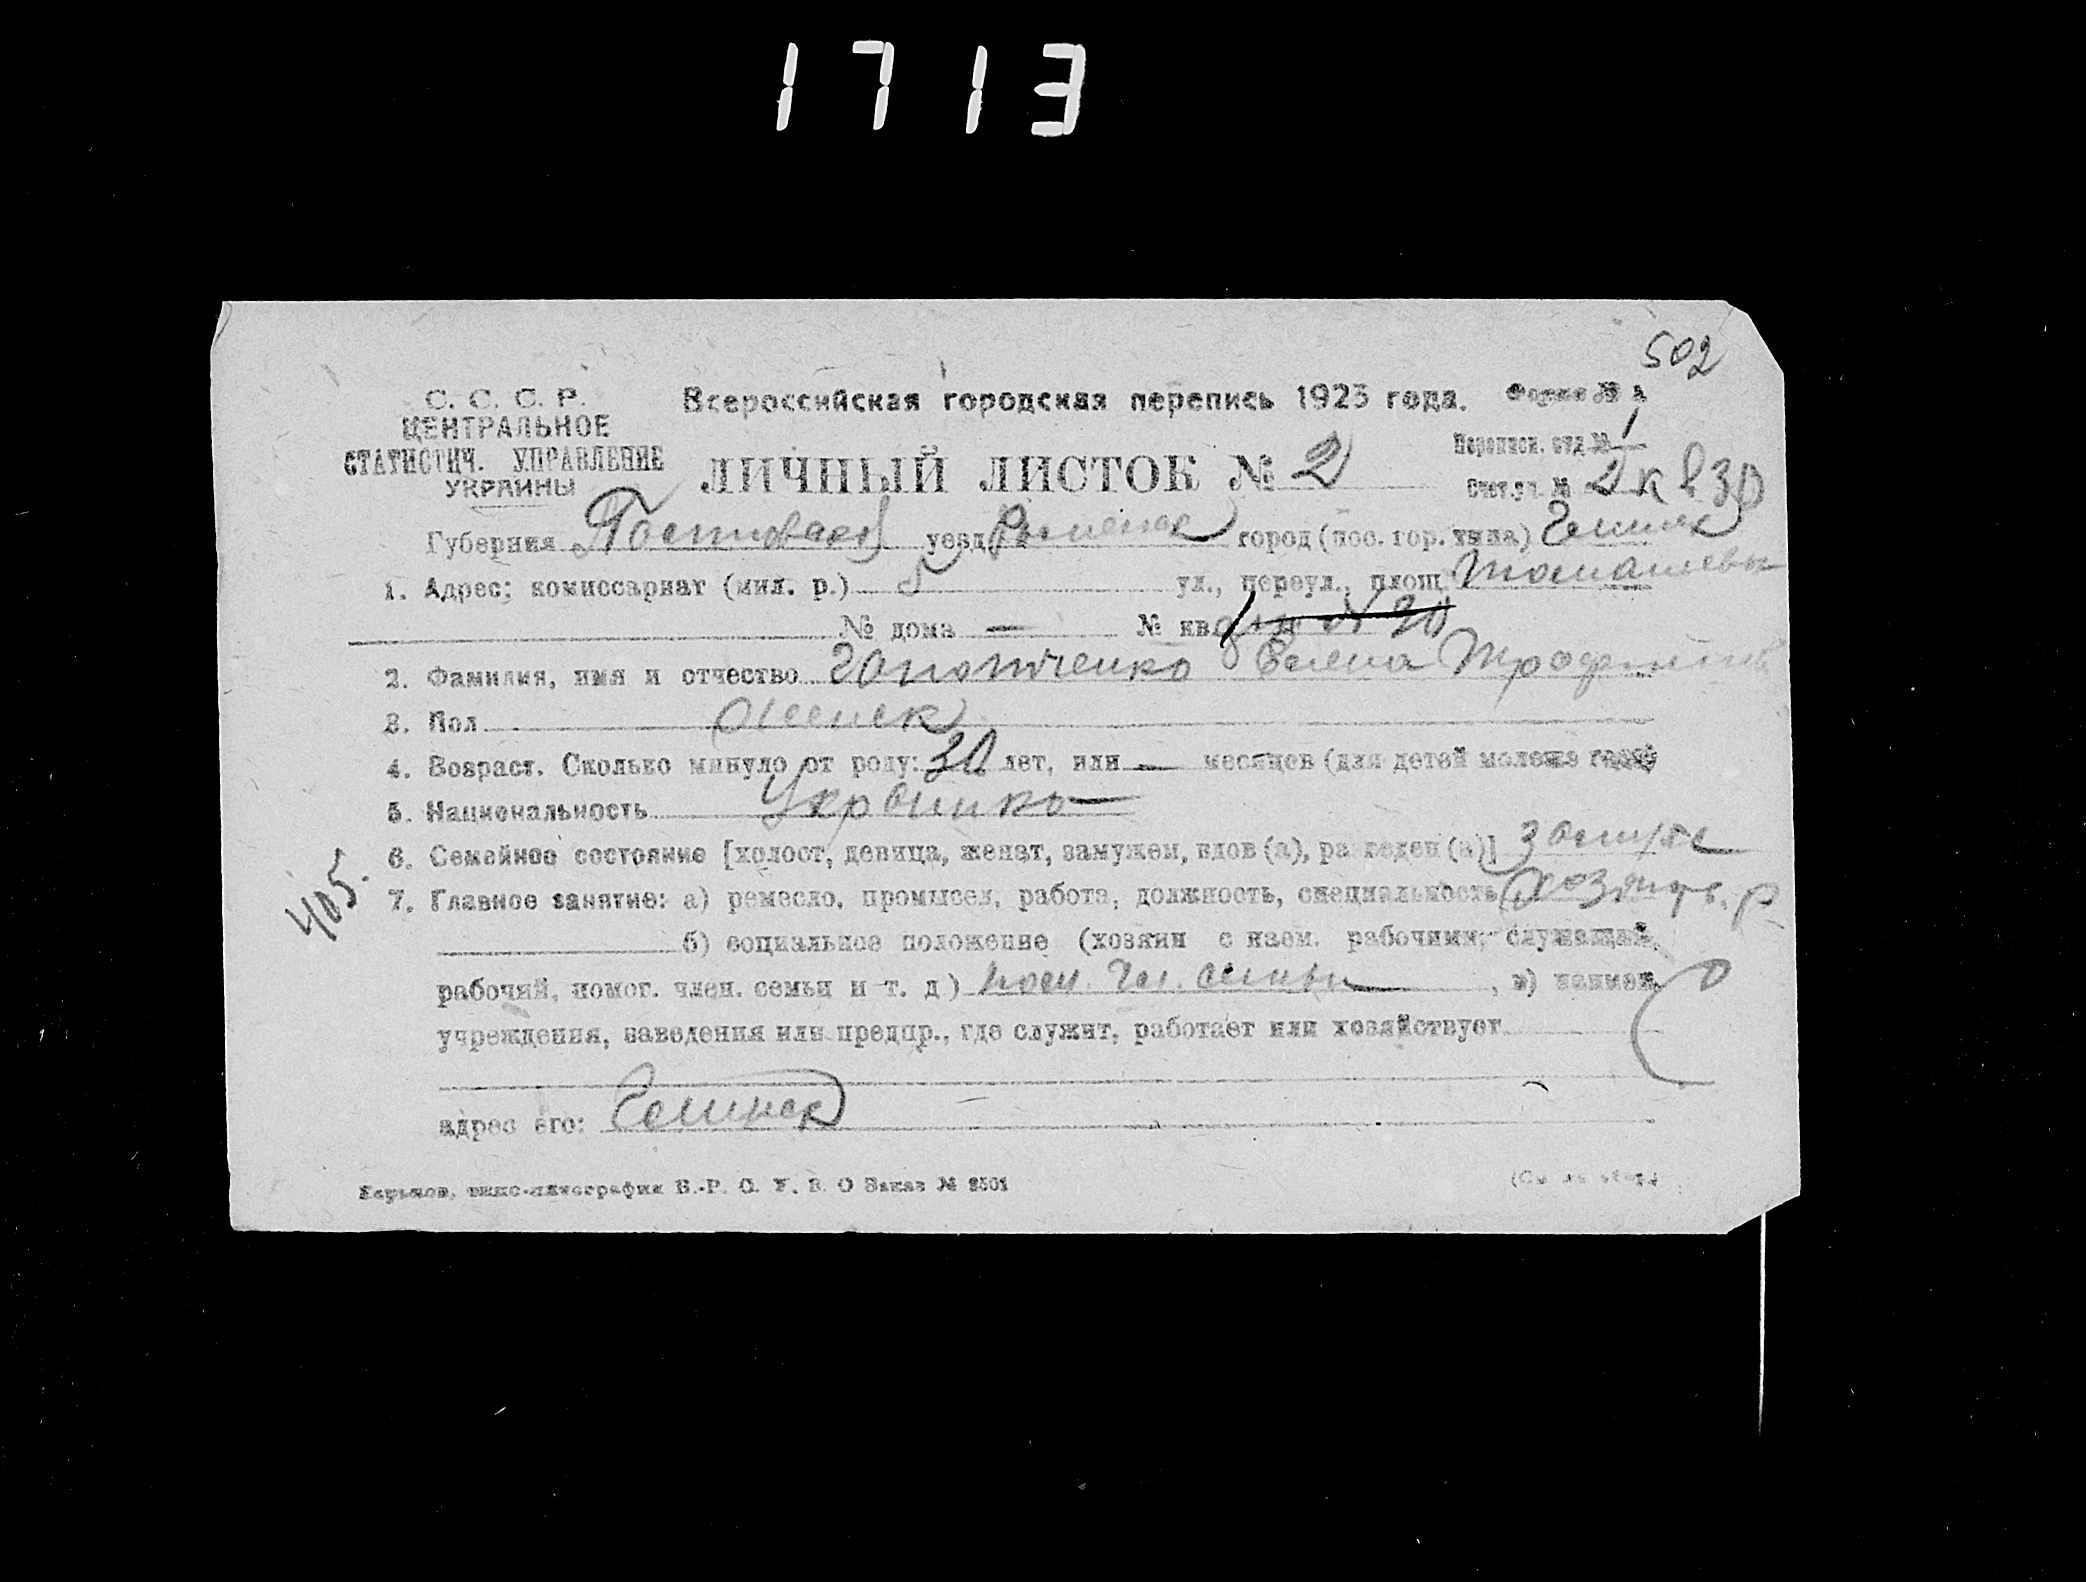 1713
502
С. С. С. Р.
ЦЕНТРАЛЬНОЕ
СТАТИСТИЧ. УПРАВЛЕНИЕ
УКРАИНЫ
Всероссийская городская перепись 1923 года.
Форма №
Переписн. отд № 1
ЛИЧНЫЙ ЛИСТОК № 2
Счет. уч. № 2 к в 30
Губерния уезд город (пос. гор. типа)
1. Адрес: комиссариат (мил. р.) 5 ул., переул., площ.
№ дома — № кв.
2. Фамилия, имя и отчество Гапотченко Елена
3. Пол Женск
4. Возраст. Сколько минуло от роду: 30 лет, или — месяцев (для детей моложе года)
5. Национальность Украинка
6. Семейное состояние [холост, девица, женат, замужем, вдов (а), разведен (а)] замуже
7. Главное занятие: а) ремесло, промысел, работа, должность, специальность
б) социальное положение (хозяин с наем. рабочими; служащий,
рабочий, помог. член. семьи и т. д) пом. чл. семьи, в) наимен.
учреждения, заведения или предпр., где служит, работает или хозяйствует
адрес его:
405.
Харьков, типо-литография В.-Р. О. У. В. О Заказ № 2501